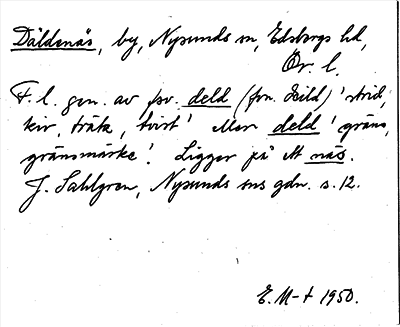 Däldenäs, by, Nysunds sn, Edsbergs hd,
Ör. l.
F. l. gen. av fsv. deld (fvn. deild) 'strid,
kiv, träta, tvist' eller deld 'gräns,
gränsmärke'. Ligger på ett näs.
J. Sahlgren, Nysunds sns gdn. s. 12.
E. M-t 1950.